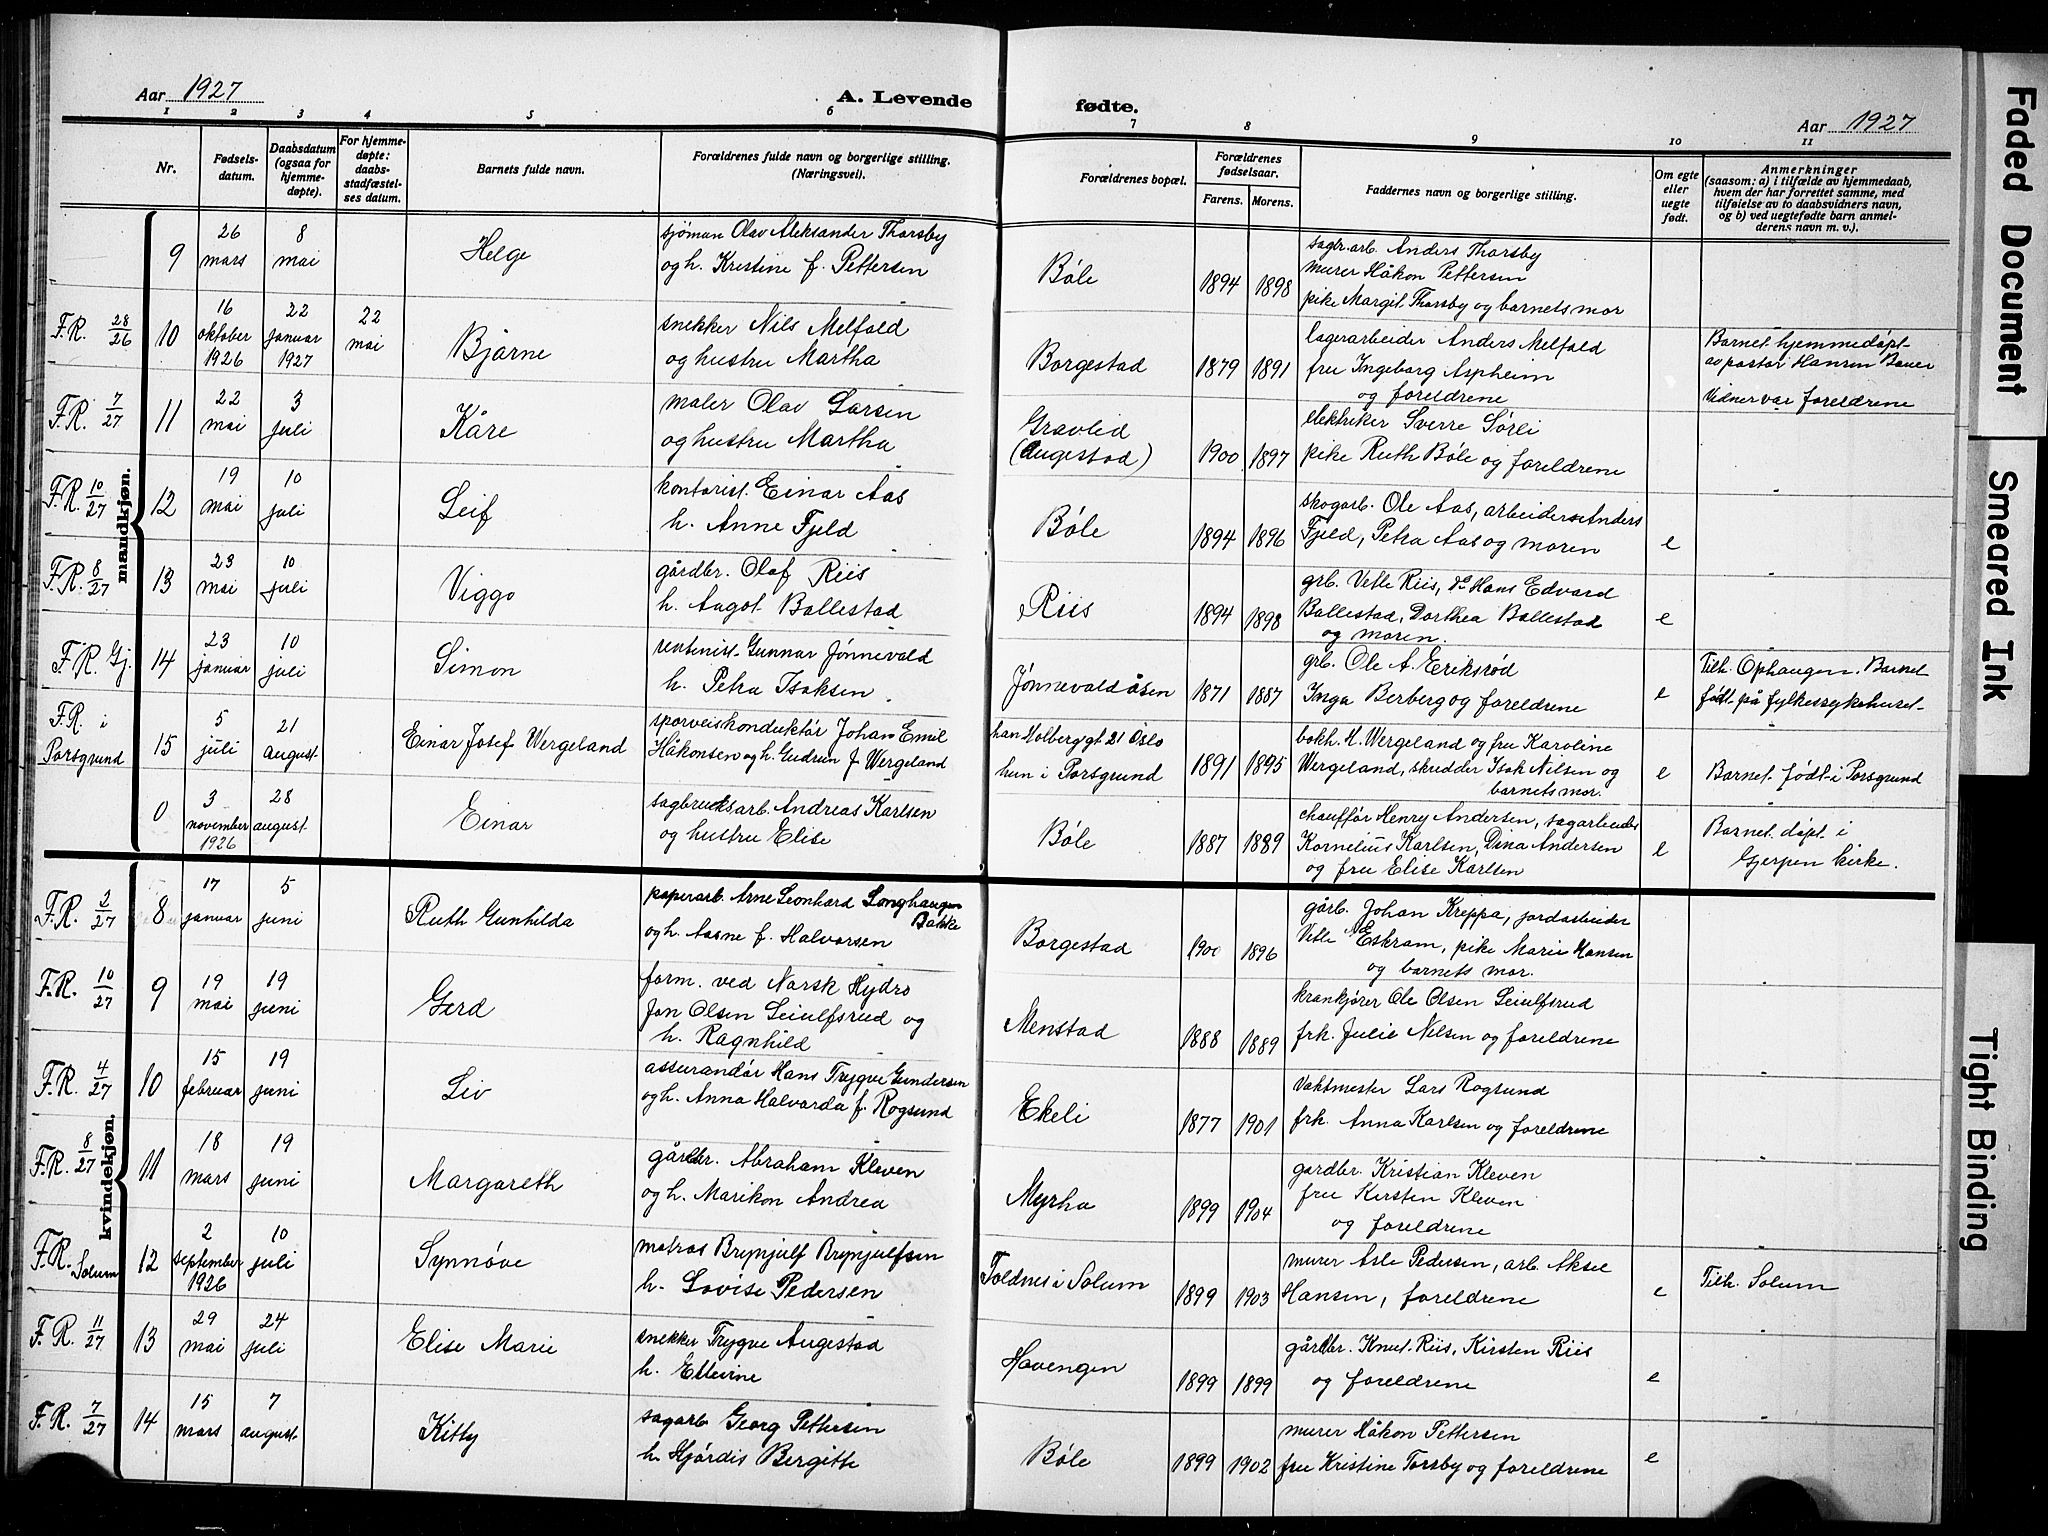 Aar 1927
A. Levende fødte.
Aar 1927
1 2 3 4 5 6 7 8 9 10 11
Nr.
Fødsels-
datum.
Daabsdatum
(ogsaa for
hjemme-
døpte).
For hjemme-
døpte:
daabs-
stadfæstel-
ses datum.
Barnets fulde navn.
Forældrenes fulde navn og borgerlige stilling.
(Næringsvei).
Forældrenes bopæl.
Forældrenes
fødselsaar.
Farens. Morens.
Faddernes navn og borgerlige stilling.
Om egte
eller
uegte
født.
Anmerkninger
(saasom: a) i tilfælde av hjemmedaab,
hvem der har forrettet samme, med
tilføielse av to daabsvidners navn,
og b) ved uegtefødte barn anmel-
derens navn m. v.).
mandkjøn.
9
26
mars
8
mai
Helge
sjöman Olav Aleksander Thorsby
og h. Kristine f. Pettersen
Bøle
1894 1898
sagbr.arb. Anders Thorsby
murer Håkon Pettersen
pike Margit Thorsby og barnets mor
F.R. 28/26
10
16
oktober
1926
22
januar
1927
22
mai
Bjarne
snekker Nils Melfald
og hustru Martha
Borgestad
1879 1891
lagerarbeider Anders Melfald
fru Ingeborg Aspheim
og foreldrene
Barnet hjemmedøpt
av pastor Hansen Bauer
Vidner var foreldrene
F.R. 7/27
11
22
mai
3
juli
Kåre
maler Olav Larsen
og hustru Martha
Gravlid
(Augestad)
1900 1897
elektriker Sverre Sørli
pike Ruth Bøle og foreldrene
F.R. 10/27
12
19
mai
10
juli
Leif
kontorist Einar Aas
h. Anne Fjeld
Bøle
1894 1896
skogarb. Ole Aas, arbeider Anders
Fjeld, Petra Aas og moren
e
F.R. 8/27
13
23
mai
10
juli
Viggo
gårdbr. Olaf Riis
h. Aagot Ballestad
Riis
1894 1898
grb. Vetle Riis, do Hans Edvard
Ballestad, Dorthea Ballestad
og moren.
e
F.R. Gj.
14
23
januar
10
juli
Simon
rentenist Gunnar Jönnevald
h. Petra Isaksen
Jönnevaldåsen
1871 1887
grb. Ole A. Eriksrød
Inga Berberg og foreldrene
e
Tilh. Ophaugen. Barnet
født på fylkessykehuset
F.R. i
Porsgrund
15
5
juli
21
august
Einar Josef Wergeland
sporveiskonduktör Johan Emil
Håkonsen og h. Gudrun f. Wergeland
han Holberg gt 21 Oslo
hun i Porsgrund
1891 1895
bokh. H. Wergeland og fru Karoline
Wergeland, skredder Isak Nilsen og
barnets mor.
e
Barnet født i Porsgrund
0
3
november
1926
28
august
Einar
sagbruksarb. Andreas Karlsen
og hustru Elise
Bøle
1887 1889
chauffør Henry Andersen, sagarbeider
Kornelius Karlsen, Dina Andersen
og fru Elise Karlsen
e
Barnet døpt i
Gjerpen kirke.
kvindekjøn.
F.R. 2/27
8
17
januar
5
juni
Ruth Gunhilda
papirarb. Arne Leonhard Langhaugen
Bakke
og h. Aasne f. Halvorsen
Borgestad
1900 1896
gårb. Johan Kreppa, jordarbeider
Vetle Eskram, pike Marie Hansen
og barnets mor.
F.R. 10/27
9
19
mai
19
juni
Gerd
form. ved Norsk Hydro
Jon Olsen Leiulfsrud og
h. Ragnhild
Menstad
1888 1889
krankjører Ole Olsen Leiulfsrud
frk. Julie Nilsen og foreldrene
F.R. 4/27
10
15
februar
19
juni
Liv
assurandör Hans Trygve Gundersen
og h. Anna Halvarda f. Rogsund
Ekeli
1877 1901
Vaktmester Lars Rogsund
frk. Anna Karlsen og foreldrene
F.R. 8/27
11
18
mars
19
juni
Margareth
gårdbr. Abraham Kleven
og h. Marikon Andrea
Myrha
1899 1904
gardbr. Kristian Kleven
fru Kirsten Kleven
og foreldrene
F.R. Solum
12
2
september
1926
10
juli
Synnøve
matros Brynjulf Brynjulfsen
h. Lovise Pedersen
Toldnes i Solum
1899 1903
murer Asle Pedersen, arb. Aksel
Hansen, foreldrene
e
Tilh. Solum
F.R. 11/27
13
29
mai
24
juli
Elise Marie
snekker Trygve Augestad
h. Ellevine
Havengen
1899 1899
gårdbr. Knut Riis, Kirsten Riis
og foreldrene
e
F.R. 7/27
14
15
mars
7
august
Kitty
sagarb Georg Pettersen
h. Hjördis Bergitte
Bøle
1899 1902
murer Håkon Pettersen
fru Kristine Torsby og foreldrene
e
Faded Document
Smeared Ink
Tight Binding